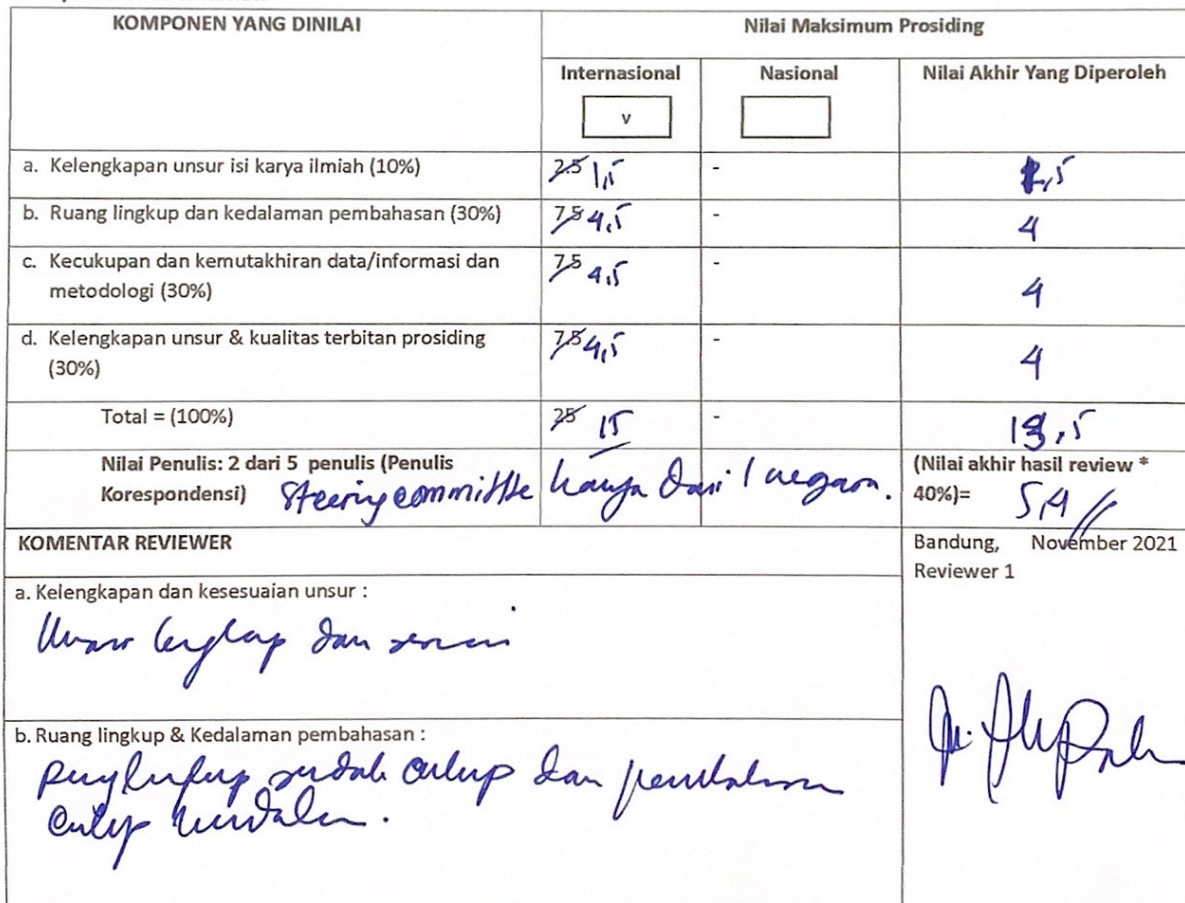 KOMPONEN YANG DINILAI
Nilai Maksimum Prosiding
Internasional
Nasional
Nilai Akhir Yang Diperoleh
v
a. Kelengkapan unsur isi karya ilmiah (10%)
2.5 1,5
-
1,5
b. Ruang lingkup dan kedalaman pembahasan (30%)
7,5 4,5
-
4
c. Kecukupan dan kemutakhiran data/informasi dan
metodologi (30%)
7,5 4,5
-
4
d. Kelengkapan unsur & kualitas terbitan prosiding
(30%)
7,5 4,5
-
4
Total = (100%)
25 15
-
13,5
Nilai Penulis: 2 dari 5 penulis (Penulis
Korespondensi)
Steering committee hanya dari 1 negara.
(Nilai akhir hasil review *
40%)= 5,4
KOMENTAR REVIEWER
Bandung, November 2021
Reviewer 1
a. Kelengkapan dan kesesuaian unsur :
Unsur lengkap dan sesuai
b. Ruang lingkup & Kedalaman pembahasan :
sudah cukup dan pembahasan
cukup mendalam.